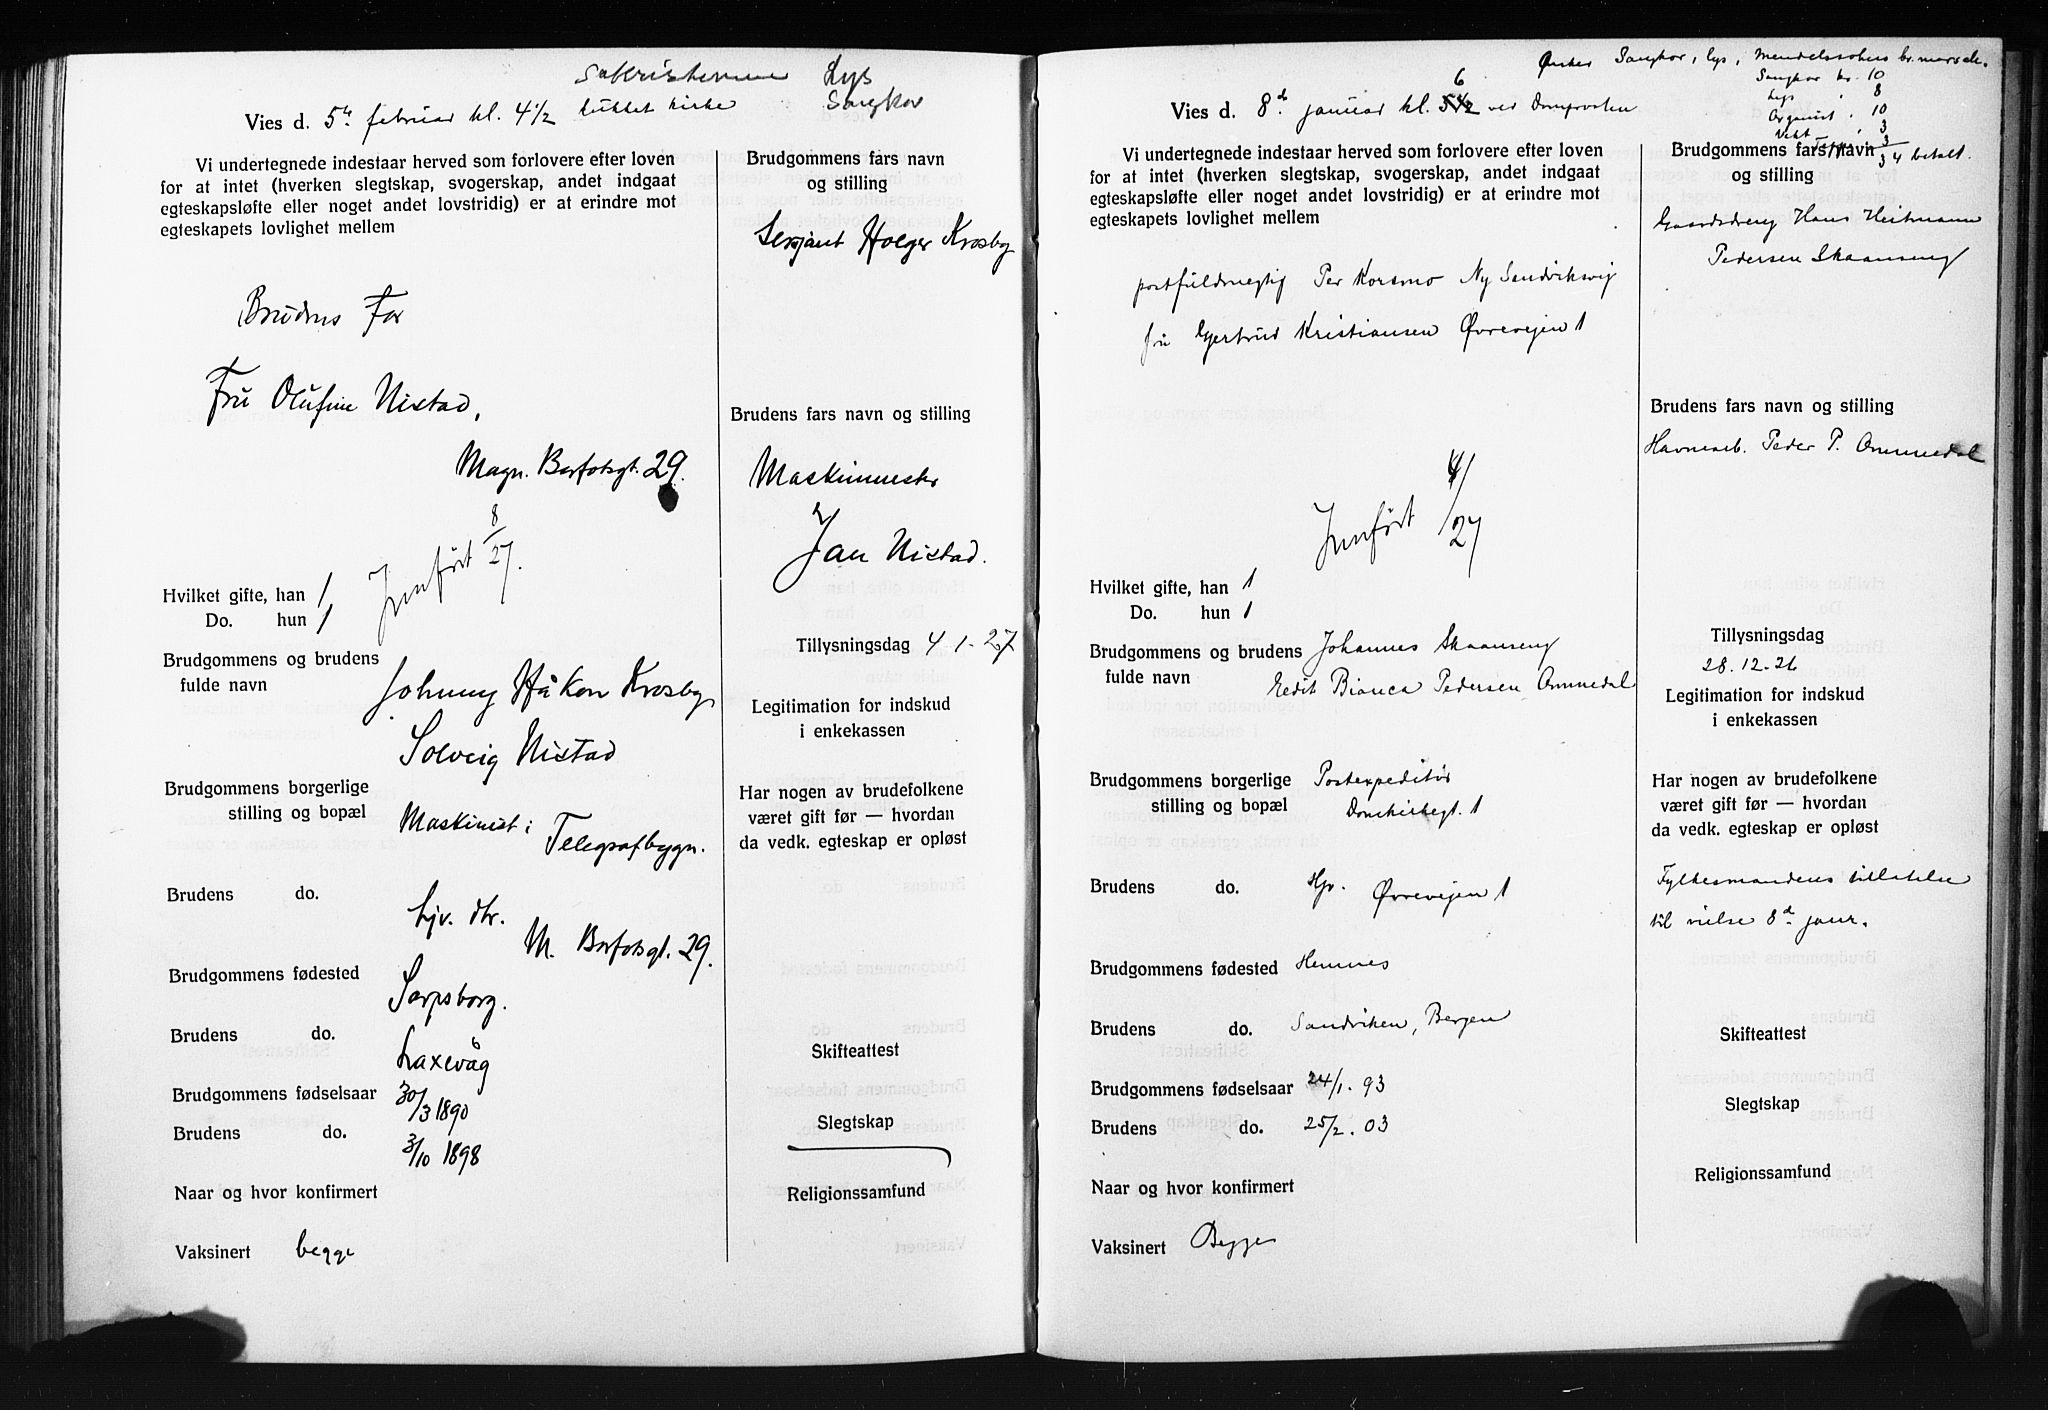 Sakristerne Lys
Sangkor
Vies d. 5te februar kl. 4 1/2 lukket kirke
Vi undertegnede indestaar herved som forlovere efter loven
for at intet (hverken slegtskap, svogerskap, andet indgaat
egteskapsløfte eller noget andet lovstridig) er at erindre mot
egteskapets lovlighet mellem
Brudens Far
Fru Olufine Nistad,
Magn. Barfotsgt. 29.
Jnnført 8/27.
Hvilket gifte, han 1
Do. hun 1
Brudgommens og brudens
fulde navn
Johnny Håkon Krosby
Solveig Nistad
Brudgommens borgerlige
stilling og bopæl
Maskinist i
Telegrafbygn.
Brudens do.
hjv. dtr.
M. Barfotsgt. 29.
Brudgommens fødested
Sarpsborg.
Brudens do.
Laxevåg
Brudgommens fødselsaar 30/3 1890
Brudens do. 3/10 1898
Naar og hvor konfirmert
Vaksinert begge
Brudgommens fars navn
og stilling
Sersjant Holger Krosby
Brudens fars navn og stilling
Maskinmester
Jan Nistad.
Tillysningsdag 4-1-27
Legitimation for indskud
i enkekassen
Har nogen av brudefolkene
været gift før — hvordan
da vedk. egteskap er opløst
Skifteattest
Slegtskap
Religionssamfund
Ønsker Sangkor, lys, Mendelssohns br.marsch.
Sangkor kr. 10
Lys " 8
Organist " 10
Vekt " 3
3
34 betalt.
6
Vies d. 8de januar kl. 5 1/2 ved Domprosten
Vi undertegnede indestaar herved som forlovere efter loven
for at intet (hverken slegtskap, svogerskap, andet indgaat
egteskapsløfte eller noget andet lovstridig) er at erindre mot
egteskapets lovlighet mellem
postfuldmegtig Per Korsmo Ny Sandviksvig
fru Gertrud Kristiansen Øvrevejen 1
Jnnført 4/1 27
Hvilket gifte, han 1
Do. hun 1
Brudgommens og brudens Johannes Skaanseng
fulde navn Edit Bianca Pedersen Ommedal
Brudgommens borgerlige Postexpeditør
stilling og bopæl Domkirkegt. 1
Brudens do. Hjv. Øvrevejen 1
Brudgommens fødested Hemnes
Brudens do. Sandviken, Bergen
Brudgommens fødselsaar 24/1. 93
Brudens do. 25/2. 03
Naar og hvor konfirmert
Vaksinert Begge
Brudgommens fars navn
og stilling
Gaardsdreng Hans Heitmann
Pedersen Skaanseng
Brudens fars navn og stilling
Havnearb. Peder P. Ommedal
Tillysningsdag
28.12.26
Legitimation for indskud
i enkekassen
Har nogen av brudefolkene
været gift før — hvordan
da vedk. egteskap er opløst
Fylkesmandens tillatelse
til vielse 8de janr.
Skifteattest
Slegtskap
Religionssamfund